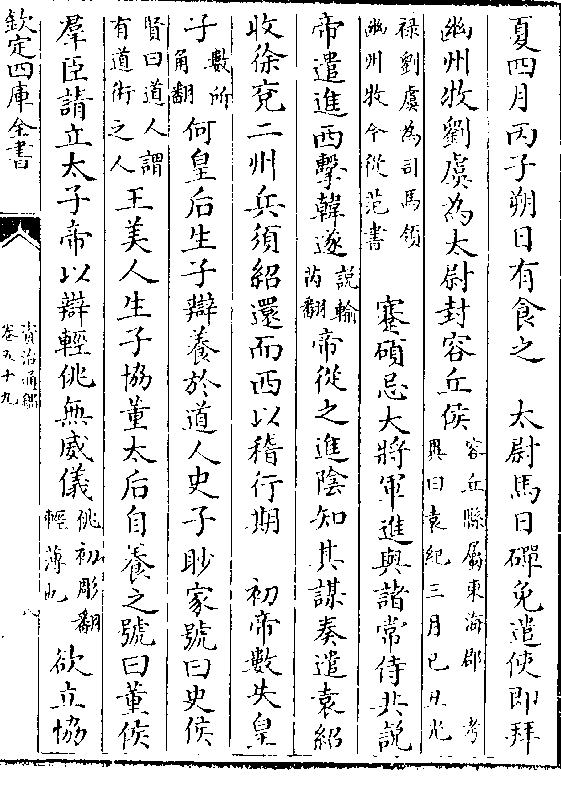 夏四月丙子朔日有食之　太尉馬日磾免遣使即拜
幽州牧劉虞為太尉封容丘侯容丘縣屬東海郡　考
異曰袁紀三月己丑光
祿劉虞為司馬領
幽州牧今從范書　蹇碩忌大將軍進與諸常侍共說
帝遣進西擊韓遂說輸
芮翻帝從之進陰知其謀奏遣袁紹
收徐兗二州兵須紹還而西以稽行期　初帝數失皇
子數所
角翻何皇后生子辯養於道人史子眇家號曰史侯
賢曰道人謂
有道術之人王美人生子協董太后自養之號曰董侯
羣臣請立太子帝以辯輕佻無威儀佻初彫翻
輕薄也欲立協
欽定四庫全書
資治通鑑
卷五十九
八